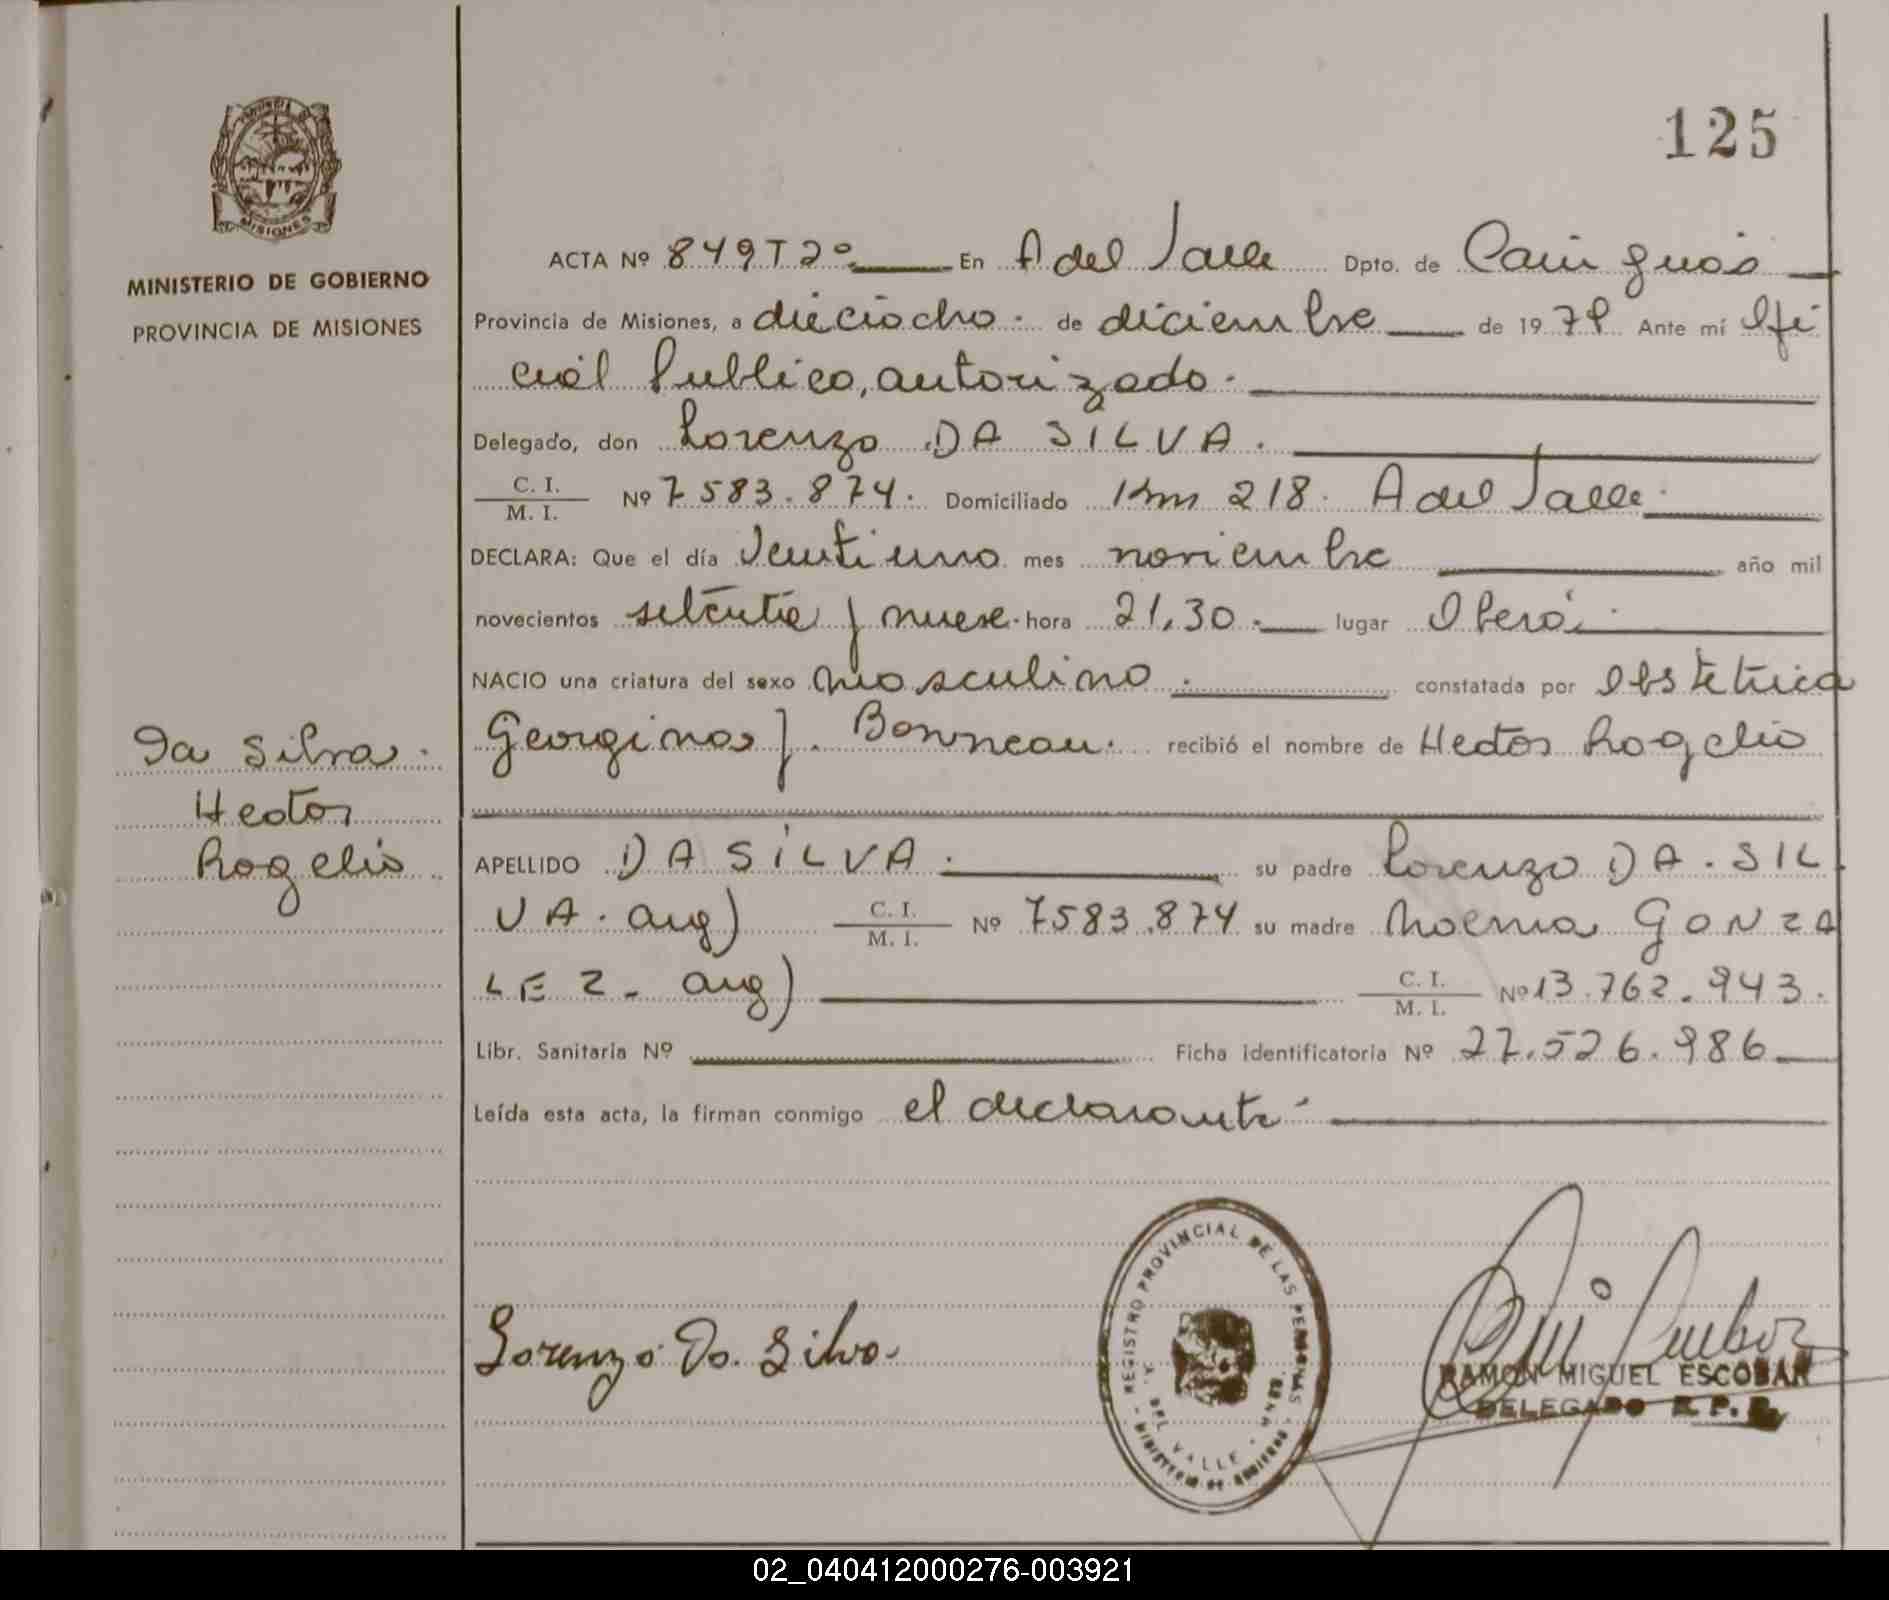 125
MINISTERIO DE GOBIERNO
PROVINCIA DE MISIONES
MISIONES
ACTA Nº 849 T 2º En A del Valle Dpto. de Cainguás
Provincia de Misiones, a dieciocho. de diciembre de 1979 Ante mí Ofi
cial Publico, autorizado.
Delegado, don Lorenzo DA SILVA.
C. I.
M. I. Nº 7583.874. Domiciliado Km 218. A del Valle.
DECLARA: Que el día Veintiuno mes noviembre año mil
novecientos setenta y nueve. hora 21,30. lugar Oberá.
NACIO una criatura del sexo masculino. constatada por Obstetrica
Georgina J. Bonneau. recibió el nombre de Hector Rogelio
Da Silva.
Hector
Rogelio
APELLIDO DA SILVA. su padre Lorenzo DA. SIL
VA. arg) C. I.
M. I. Nº 7583.874 su madre Noemia GONZA
LEZ - arg) C. I.
M. I. Nº 13.762.943.
Libr. Sanitaria Nº Ficha identificatoria Nº 27.526.986
Leída esta acta, la firman conmigo el declarante.
REGISTRO PROVINCIAL DE LAS PERSONAS
A. DEL VALLE
MINISTERIO DE GOBIERNO
Lorenzo Da. Silva.
RAMON MIGUEL ESCOBAR
DELEGADO R. P. P.
02_040412000276-003921